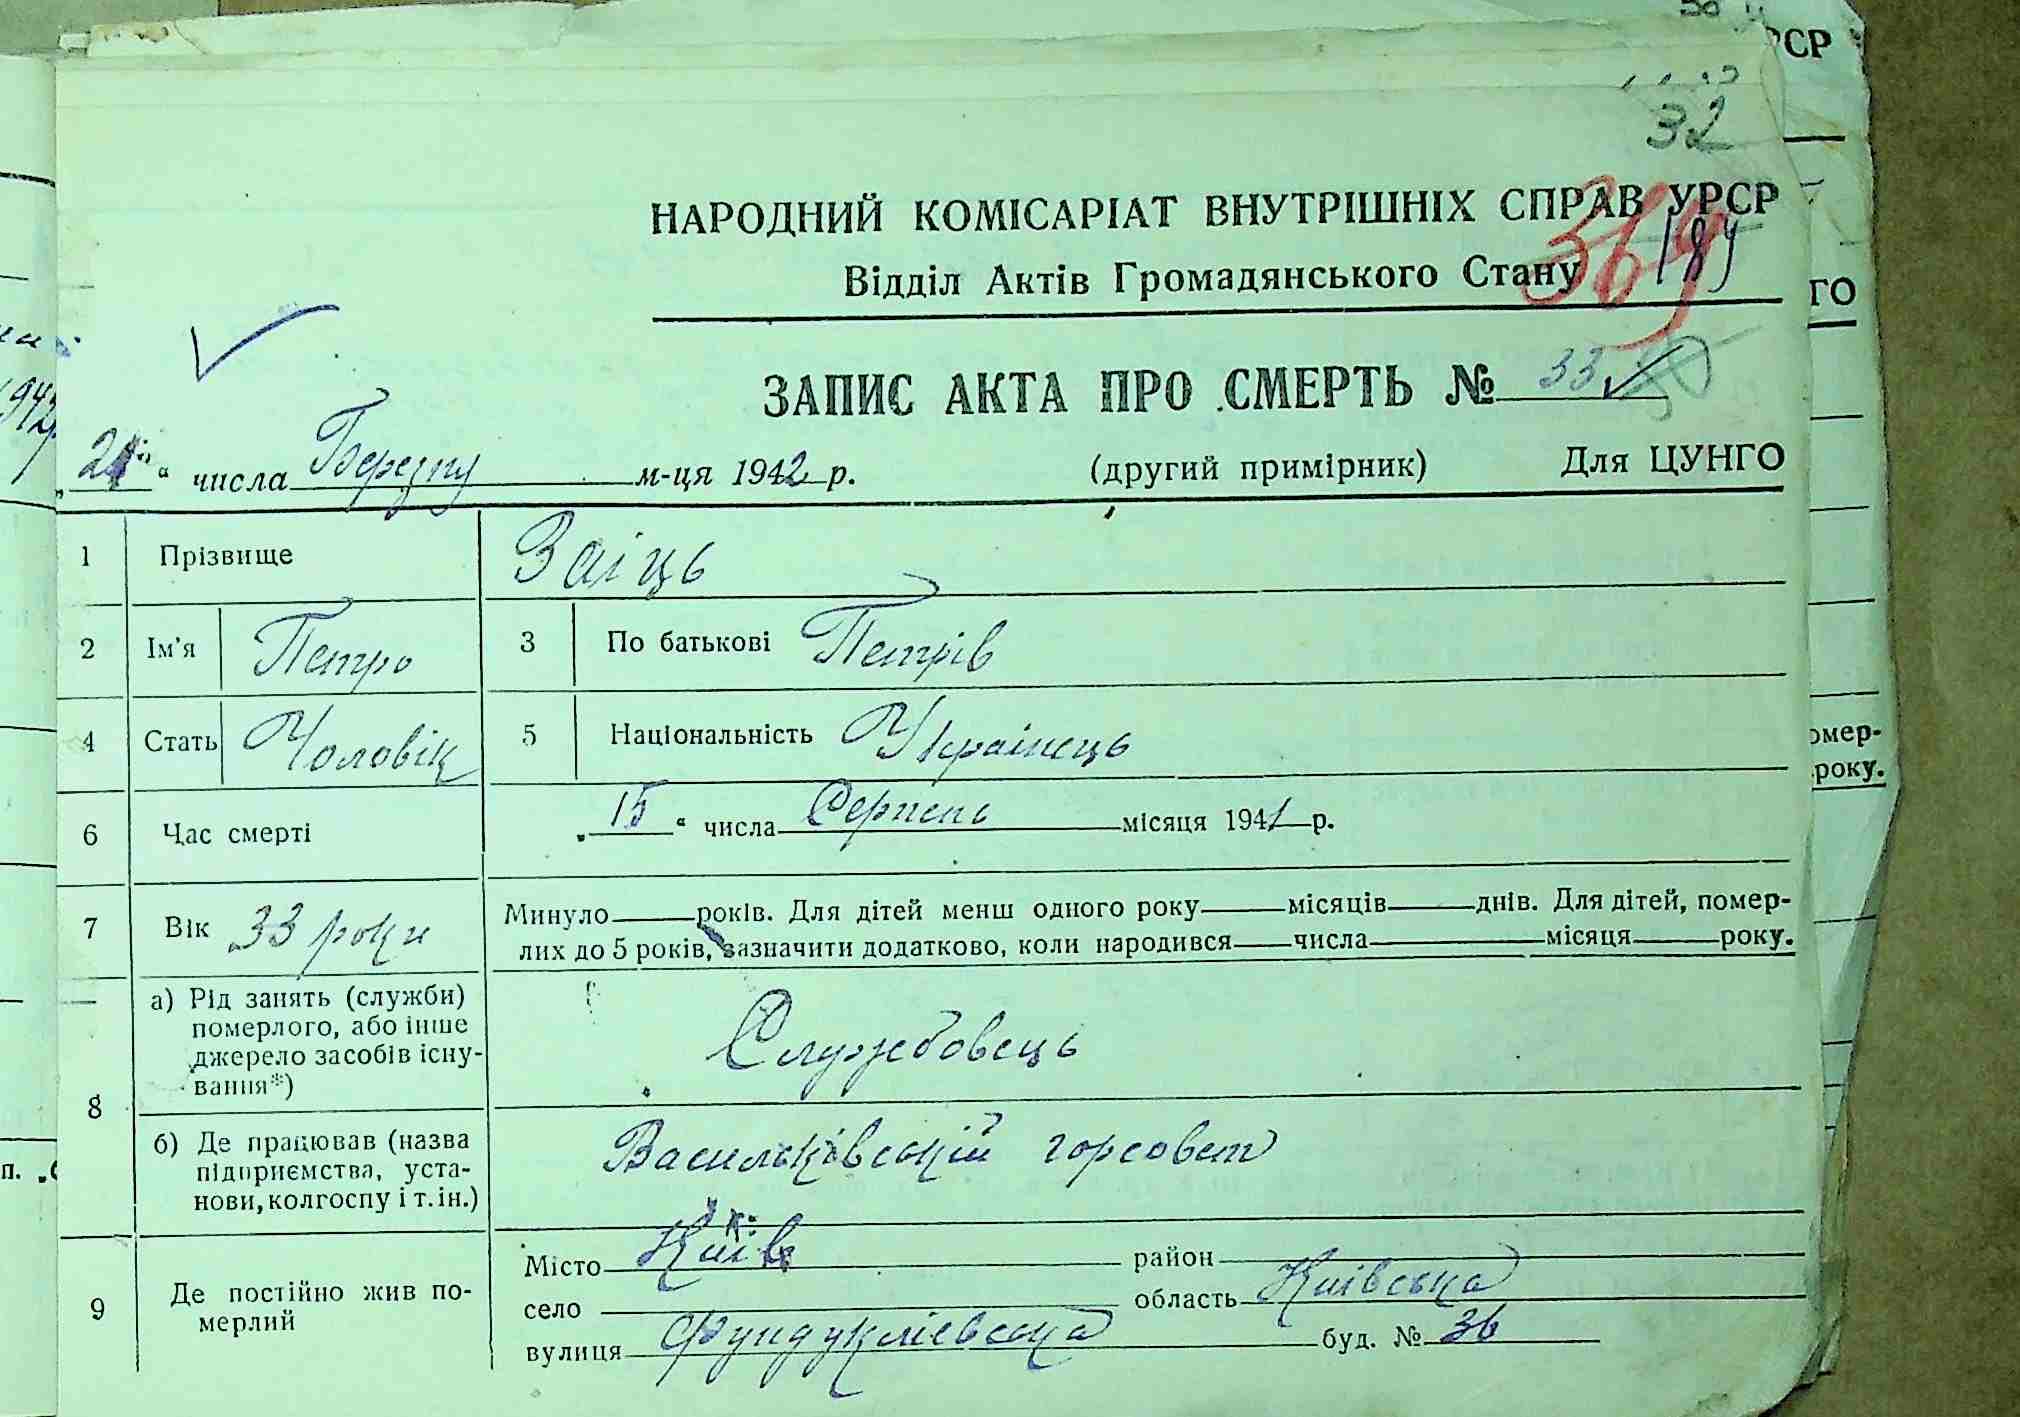 32
НАРОДНИЙ КОМІСАРІАТ ВНУТРІШНІХ СПРАВ УРСР
369 189
Відділ Актів Громадянського Стану
ЗАПИС АКТА ПРО СМЕРТЬ № 33
„21“ числа Березну м-ця 1942 р. (другий примірник) Для ЦУНГО
1 Прізвище Заіць
2 Ім'я Петро 3 По батькові Петрів
4 Стать Чоловік 5 Національність Українець
6 Час смерті „15“ числа Серпень місяця 1941 р.
7 Вік 33 роки Минуло років. Для дітей менш одного року місяців днів. Для дітей, помер-
лих до 5 років, зазначити додатково, коли народився числа місяця року.
8 а) Рід занять (служби)
померлого, або інше
джерело засобів існу-
вання*)
Службовець
б) Де працював (назва
підприємства, уста-
нови, колгоспу і т. ін.)
Васильківський горсовет
9 Де постійно жив по-
мерлий
Місто Київ район
село область Київська
вулиця Фундукліевська буд. № 36
РСР
ГО
омер-
року.